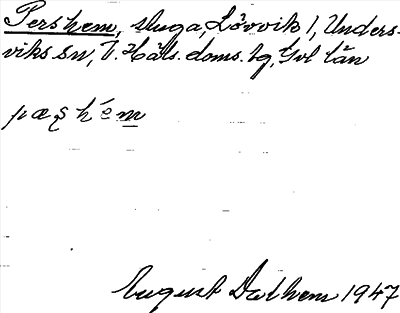 Pershem, stuga, Lövvik 1, Unders-
viks sn, V. Häls. doms. tg, Gvl län
pæʂhém
August Dalhem 1947